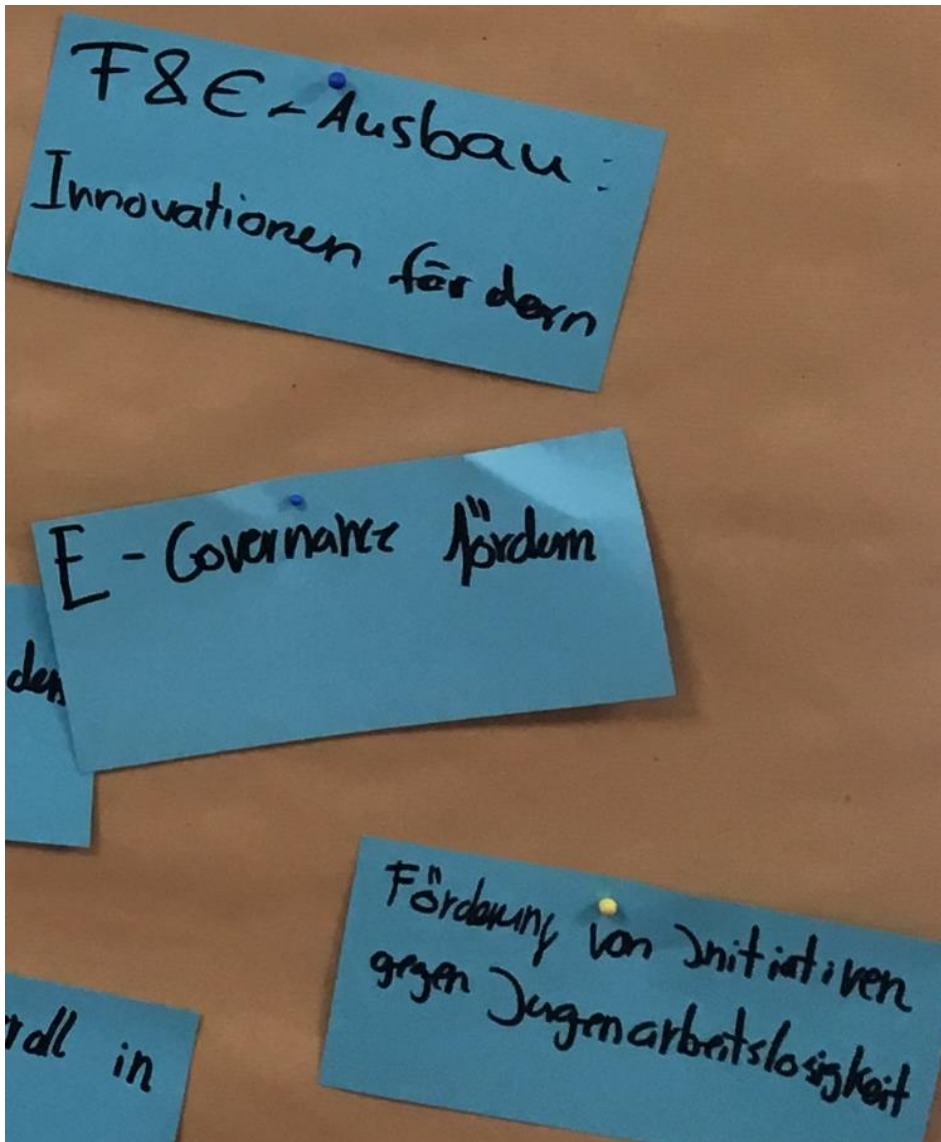 F&E-Ausbau:
Innovationen fördern
E-Governance fördern
den
Förderung von Initiativen
gegen Jugenarbeitslosigkeit
in